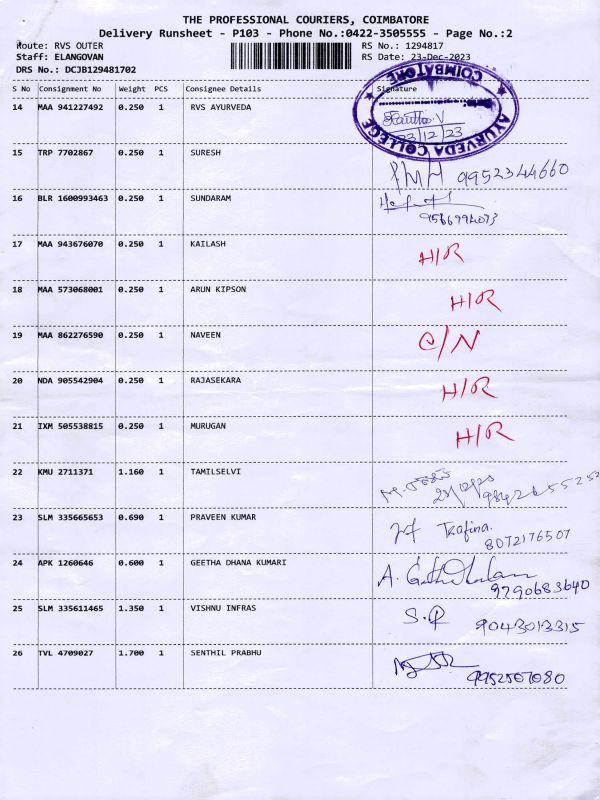 THE PROFESSIONAL COURIERS, COIMBATORE
Delivery Runsheet - P103 - Phone No.:0422-3505555 - Page No.:2
Route: RVS OUTER RS No.: 1294817
Staff: ELANGOVAN RS Date: 23-Dec-2023
DRS No.: DCJB129481702
S No Consignment No Weight PCS Consignee Details Signature
COIMBATORE
AYURVEDA COLLEGE
23/12/23
14 MAA 941227492 0.250 1 RVS AYURVEDA
15 TRP 7702867 0.250 1 SURESH
9952344660
16 BLR 1600993463 0.250 1 SUNDARAM
9566994073
17 MAA 943676070 0.250 1 KAILASH
H/R
18 MAA 573068001 0.250 1 ARUN KIPSON
H/R
19 MAA 862276590 0.250 1 NAVEEN
O/N
20 NDA 905542904 0.250 1 RAJASEKARA
H/R
21 IXM 505538815 0.250 1 MURUGAN
H/R
22 KMU 2711371 1.160 1 TAMILSELVI
23 SLM 335665653 0.690 1 PRAVEEN KUMAR
8072176507
24 APK 1260646 0.600 1 GEETHA DHANA KUMARI
9790683640
25 SLM 335611465 1.350 1 VISHNU INFRAS
9043013315
26 TVL 4709027 1.700 1 SENTHIL PRABHU
9952507080